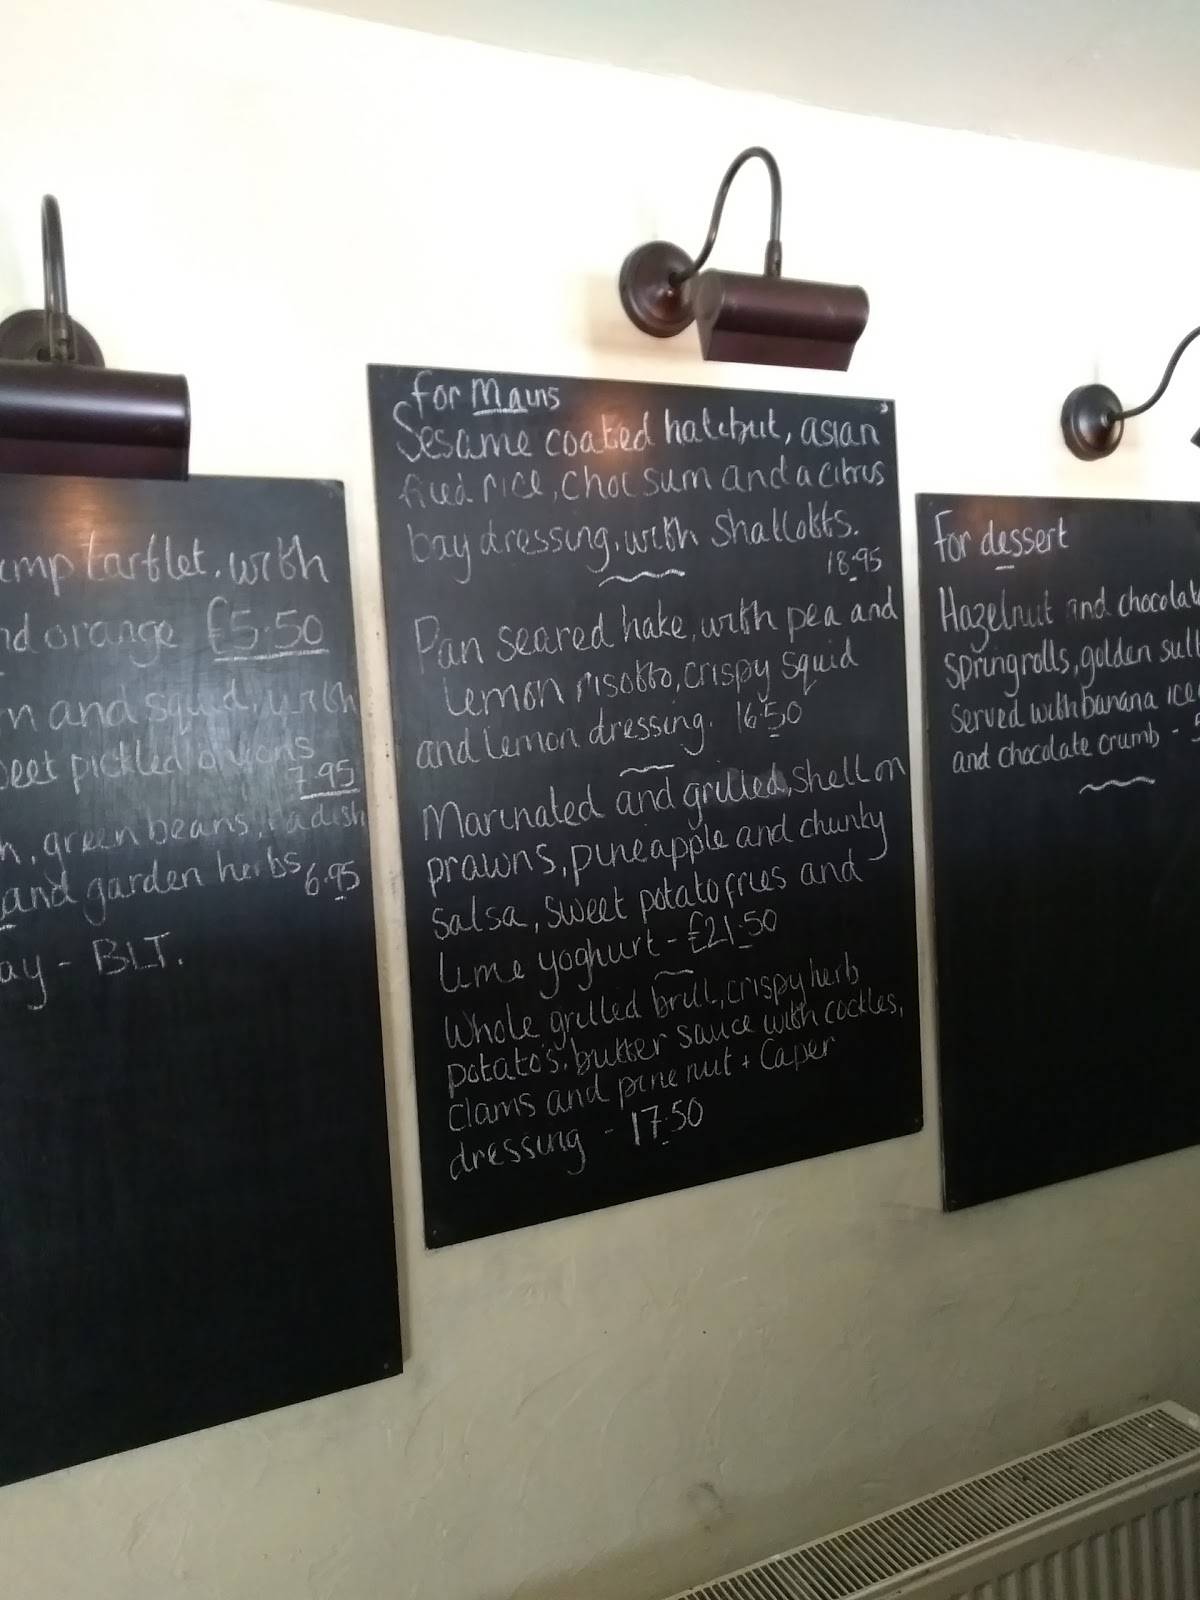 tartlet, with
orange £5.50
and squid, with
pickled onions
7.95
, green beans, radish
and garden herbs
6.95
- BLT.
for Mains
Sesame coated halibut, asian
fried rice, choi sum and a citrus
bay dressing, with Shallotts.
18.95
Pan seared hake, with pea and
lemon risotto, crispy squid
and lemon dressing. 16.50
Marinated and grilled, shell on
prawns, pineapple and chunky
salsa, sweet potato fries and
lime yoghurt - £21.50
Whole grilled brill, crispy herb
potato's, butter sauce with cockles,
clams and pine nut + Caper
dressing - 17.50
For dessert
Hazelnut and chocolate
Springrolls, golden
Served with banana ice
and chocolate crumb -